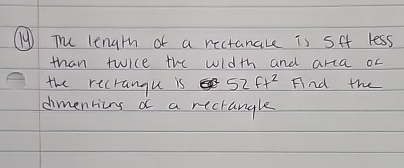 (14) The length of a rectangle is 5ft less
than twice the width and area of
the rectangle is 52 ft² Find the
dimentions of a rectangle